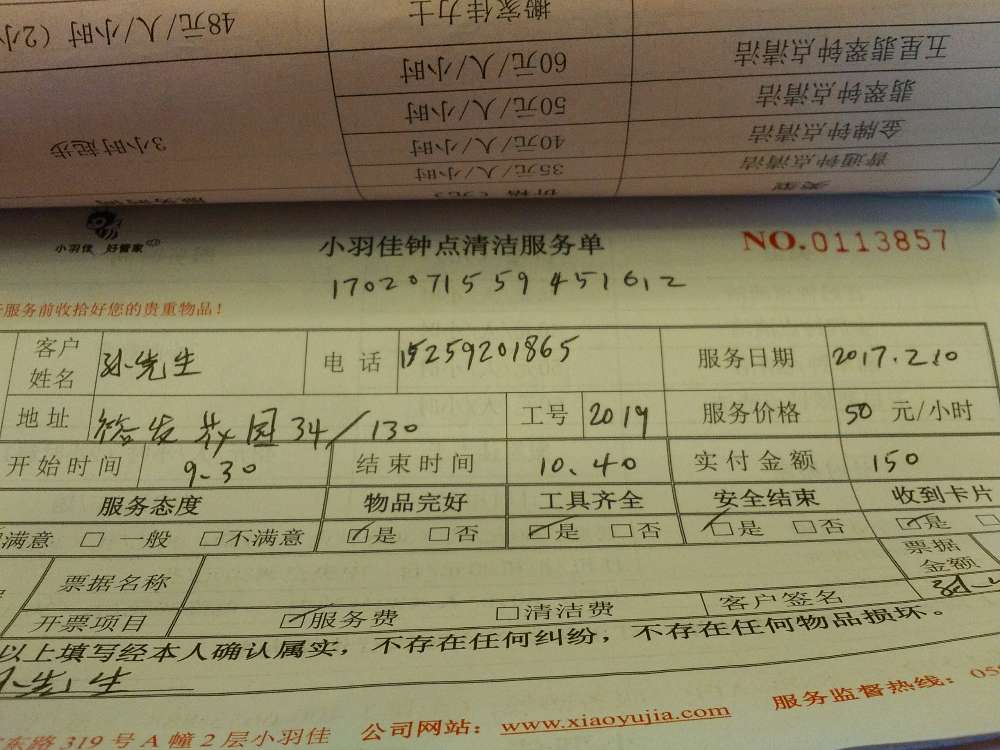 搬家佳力士 48元/人/小时 (2小
五星翡翠钟点清洁 60元/人/小时
翡翠钟点清洁 50元/人/小时
金牌钟点清洁 40元/人/小时 3小时起步
普通钟点清洁 35元/人/小时
类型 价格(元) 服务时间
小羽佳 好管家
小羽佳钟点清洁服务单
NO.0113857
17020715594516,2
服务前收拾好您的贵重物品!
客户姓名 孙先生 电话 15259201865 服务日期 2017.2.10
地址 裕发花园 34/130 工号 2019 服务价格 50 元/小时
开始时间 9.30 结束时间 10.40 实付金额 150
服务态度 物品完好 工具齐全 安全结束 收到卡片
满意 □ 一般 □不满意 ☑是 □否 ☑是 □否 ☑是 □否 ☑是 □
票据名称 票据金额
开票项目 ☑服务费 □清洁费 客户签名
以上填写经本人确认属实,不存在任何纠纷,不存在任何物品损坏。
孙先生
东路319号A幢2层小羽佳 公司网站:www.xiaoyujia.com 服务监督热线:05